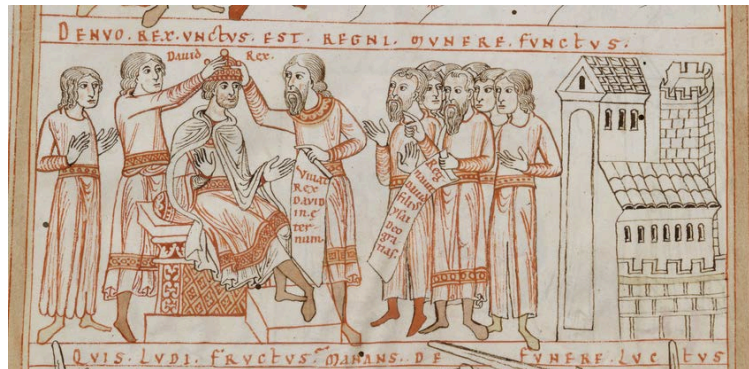 DENVO. REX. VNCTVS. EST. REGNI. MVNERE. FVNCTVS.
David Rex.
Viuat
REX
DAVID
in e
ternum.
Reg
Dauid
ysai
Deo
gra
tias.
QVIS. LVDI. FRVCTVS. MANANS. DE FVNERE. LVCTVS